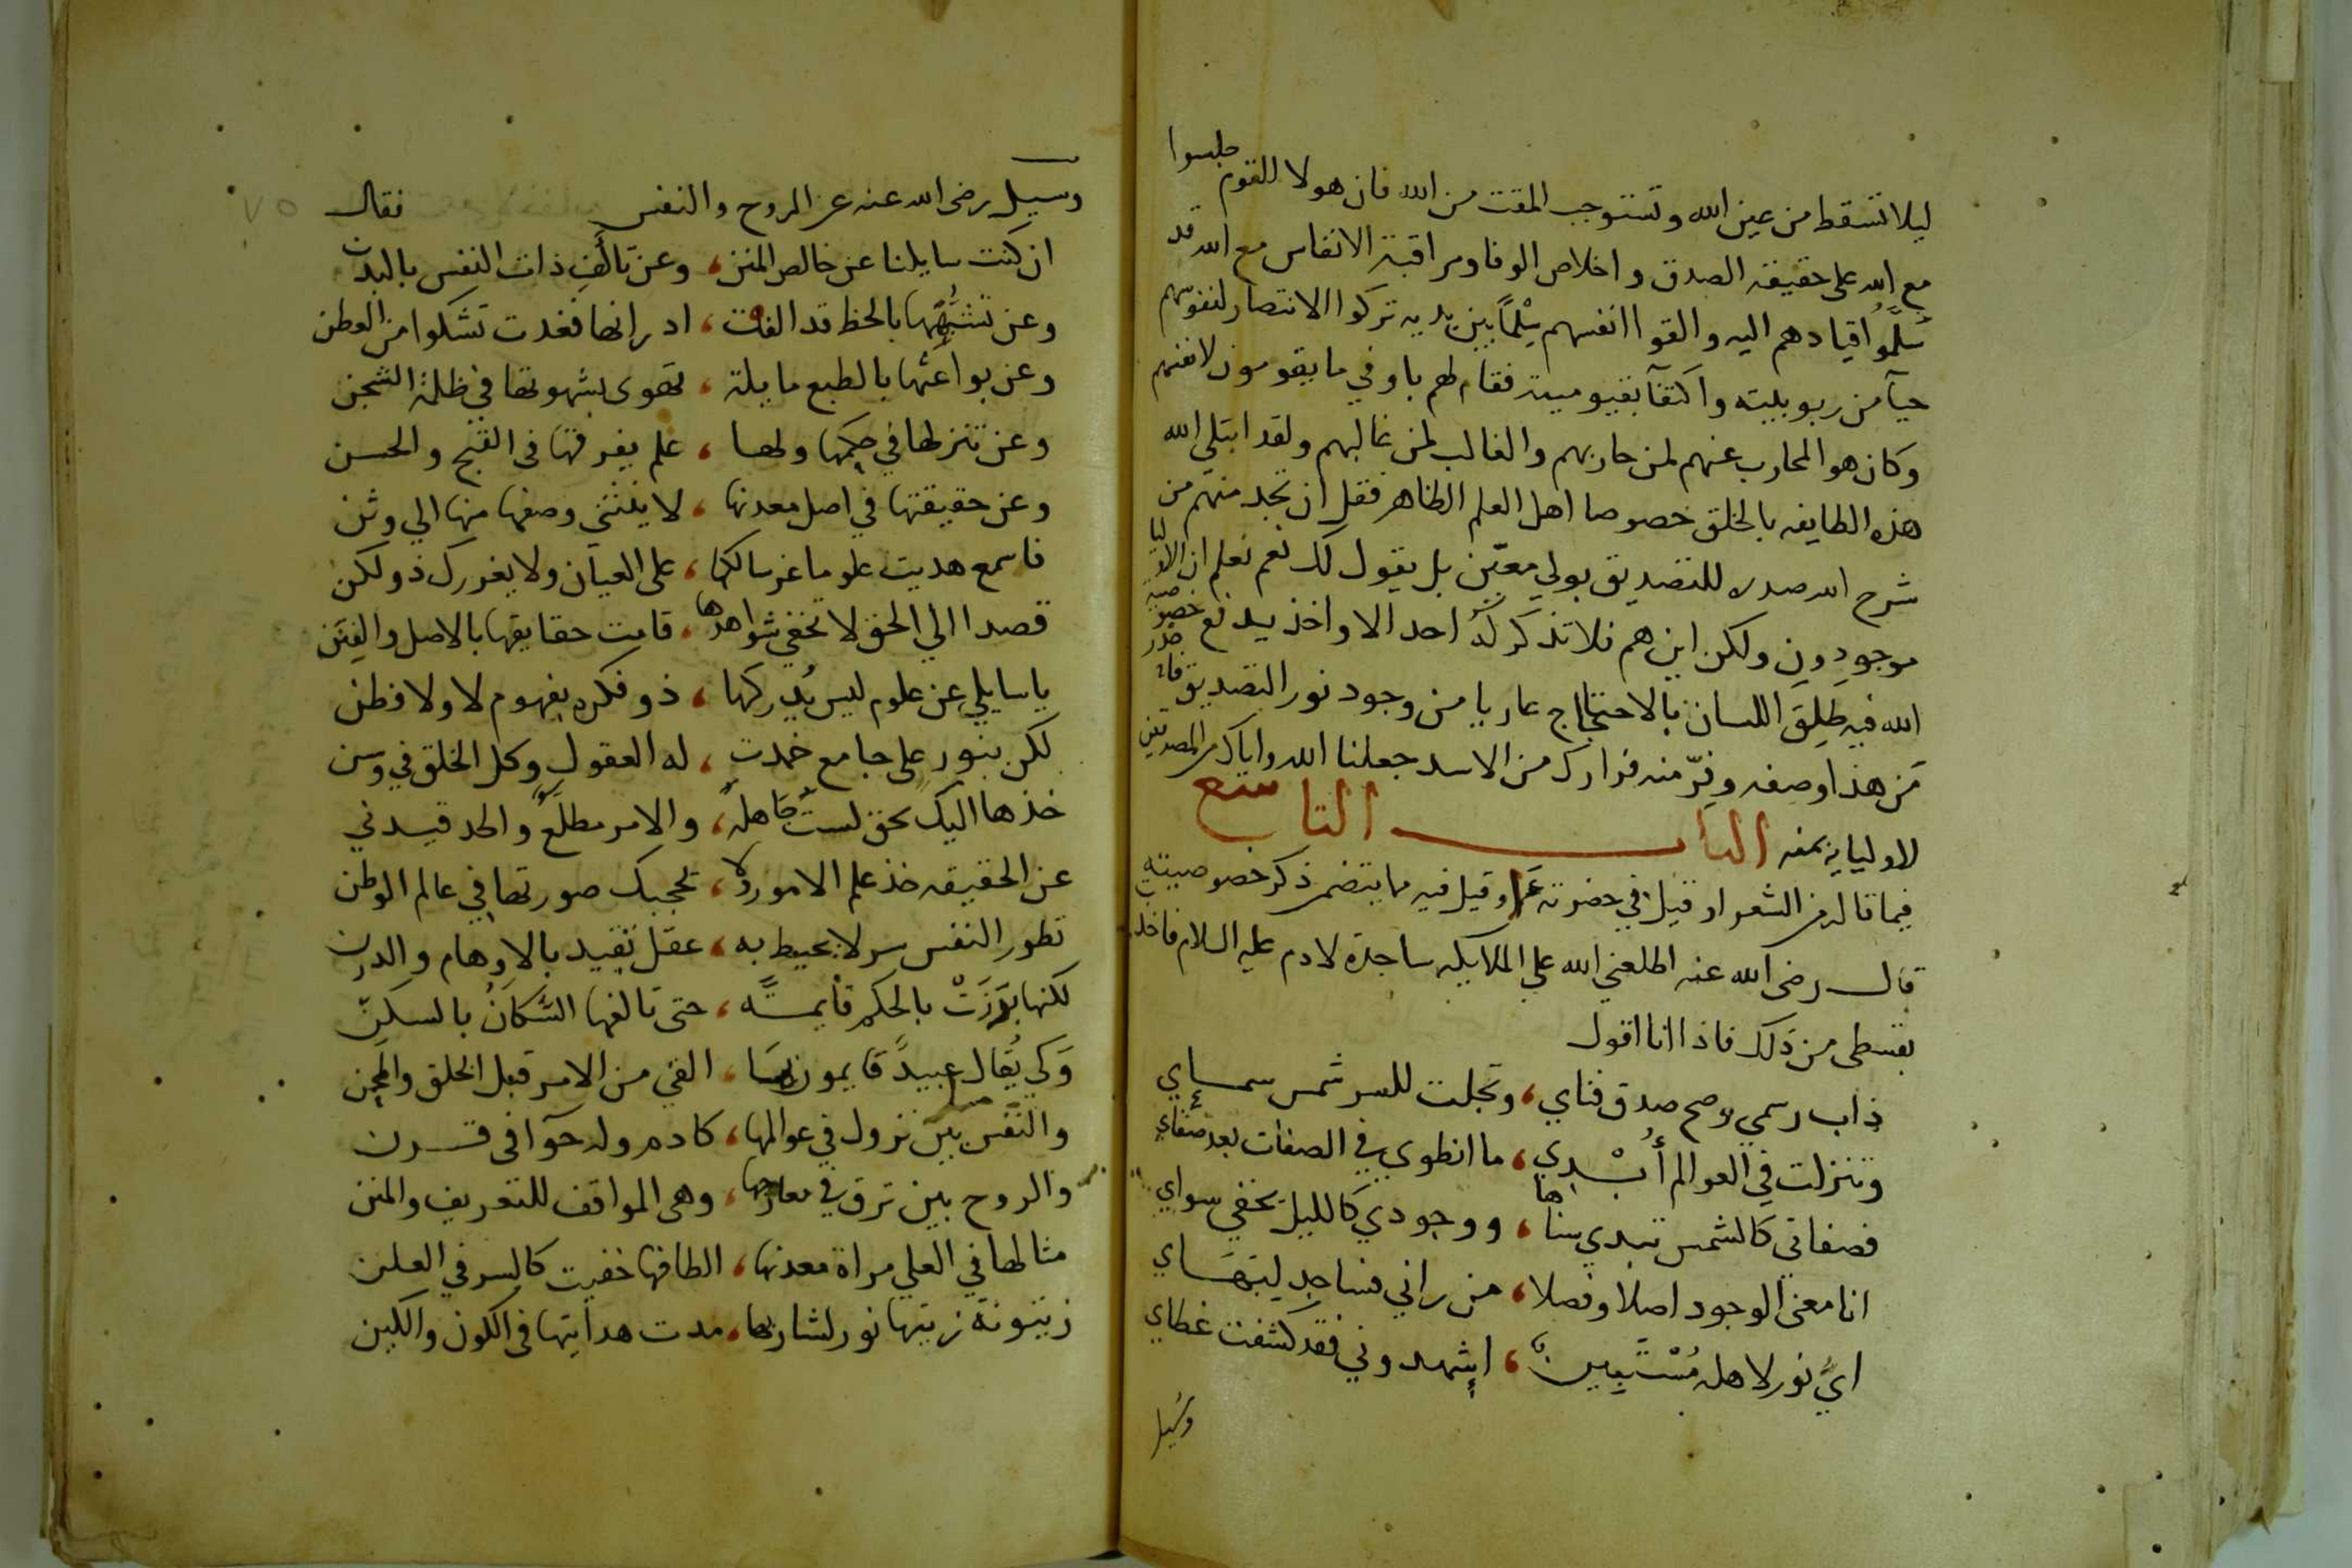 ليلا تسقط من عين الله وتستوجب المقت من الله فان هولا للقوم جلسوا
مع الله على حقيقة الصدق واخلاص الوفا ومراقبة الانفاس مع الله قد
سلموا قيادهم اليه والقوا انفسهم سلما بين يديه تركوا الانتصار لنفوسهم
حيآ من ربوبيته واكتفآ بقيوميته فقام لهم باوفي ما يقومون لانفسهم
وكان هو المحارب عنهم لمن حاربهم والغالب لمن غالبهم ولقد ابتلي الله
هذه الطايفه بالخلق خصوصا اهل العلم الظاهر فقل ان تجد منهم من
شرح الله صدره للتصديق بولي معين بل يقول لك نعم نعلم ان الاوليا
موجودون ولكن اين هم فلا تذكر له احد الا واخذ يدفع خصوصيه
الله فيه طلق اللسان بالاحتجاج عاريا من وجود نور التصديق فاحذر
من هذا وصفه وفر منه فرارك من الاسد جعلنا الله واياك من المصدقين
لاوليايه بمنه الباب التاسع
فيما قاله من الشعر او قيل في حضرته او قيل فيه مما يتضمن ذكر خصوصيته
قال رضى الله عنه اطلعني الله على الملايكه ساجدة لادم عليه السلام فاخذت
بقسطى من ذلك فاذا انا اقول
ذاب رسمي وصح صدق فناي، وتجلت للسر شمس سماي
وتنزلت في العوالم أُبْدِي، ما انطوي في الصفات بعد صفاي
فصفاتي كالشمس تبدي سناها، ووجودي كالليل تخفي سواي
انا معنى الوجود اصلا وفصلا، من راني فساجد لبهاي
ايُّ نور لاهله مُسْتَبِين، إشهدوني فقد كشفت غطاي
وسيل
وسيل رضى الله عنه عن الروح والنفس فقال
ان كنت سايلنا عن خالص المنن، وعن تألف ذات النفس بالبدن
وعن تشبهها بالحظ قد الفت، ادرانها فغدت تشكوا من الوطن
وعن بواعثها بالطبع مايلة، تهوى بشهوتها في ظلمة الشجن
وعن تنزلها في حكمها ولها، علم يفرقها في القبح والحسن
وعن حقيقتها في اصل معدنها، لا ينثني وصفها منها الي وثن
فاسمع هديت علوما عز سالكها، على العيان ولا يغررك ذو لكن
قصدا الي الحق لا تخفي شواهدها، قامت حقايقها بالاصل والفنن
يا سايلي عن علوم ليس يدركها، ذو فكره بفهوم لا ولا فطن
لكن بنور على جامع خمدت، له العقول وكل الخلق في وسن
خذها اليك بحق لست جاهله، والامر مطلع والحد قيدني
عن الحقيقه خذ علم الامور ولا، تحجبك صورتها في عالم الوطن
تطور النفس سر لا يحيط به، عقل تقيد بالاوهام والدرن
لكنها برزت بالحكم قايمة، حتى تالفها السكان بالسكن
وكي يقال عبيد قايمون بما، القي من الامر قبل الخلق والمحن
والنفس بين نزول في عوالمها، كادم وله حوآ في قرن
والروح بين ترق في معارجها، وهى المواقف للتعريف والمنن
مثالها في العلي مراة معدنها، الطافها خفيت كالسر في العلن
زيتونة زيتها نور لشاربها، مدت هدايتها في الكون والكين